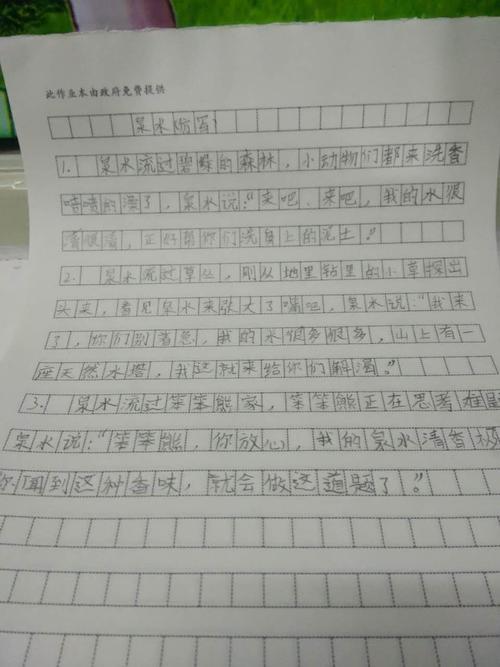 此作业本由政府免费提供
泉水仿写
1. 泉水流过碧绿的森林，小动物们都来洗香
喷喷的澡了，泉水说："来吧、来吧，我的水很
清很清，正好帮你们洗身上的泥土。"
2. 泉水流过草丛，刚从地里钻里的小草探出
头来，看见泉水来张大了嘴吧，泉水说："我来
了，你们别着急，我的水很多很多，山上有一
座天然水塔，我这就来给你们解渴。"
3. 泉水流过笨笨熊家，笨笨熊正在思考难题
泉水说："笨笨熊，你放心，我的泉水清香极
你闻到这种香味，就会做这道题了。"